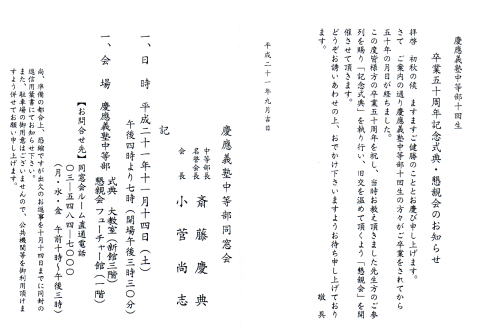 慶應義塾中等部十回生
卒業五十周年記念式典・懇親会のお知らせ
拝啓 初秋の候 ますますご健勝のこととお慶び申し上げます。
さて ご案内の通り慶應義塾中等部十回生の方々がご卒業をされてから
五十年の月日が経ちました。
この度皆様方の卒業五十周年を祝し、当時お教え頂きました先生方のご参
列を賜り「記念式典」を執り行い、旧交を温めて頂くよう「懇親会」を開
催させて頂きます。
どうぞお誘いあわせの上、おでかけ下さいますようお待ち申し上げており
ます。
敬具
平成二十一年九月吉日
慶應義塾中等部同窓会
中等部長
名誉会長 斎藤慶典
会長 小菅尚志
記
一、日時 平成二十一年十一月十四日(土)
午後四時より七時(開場午後三時三〇分)
一、会場 慶應義塾中等部
式典 大教室(新館三階)
懇親会 フューチャー館(一階)
【お問合せ先】同窓会ルーム直通電話
〇三―五四八四―七〇〇〇
(月・水・金 午前十時~午後三時)
尚、準備の都合上、恐縮ですが出欠のお返事を十月十四日までに同封の
返信用葉書にてお知らせ下さい。
また、駐車場の御用意はございませんので、公共機関等を御利用頂けま
すよう併せてお願い申し上げます。